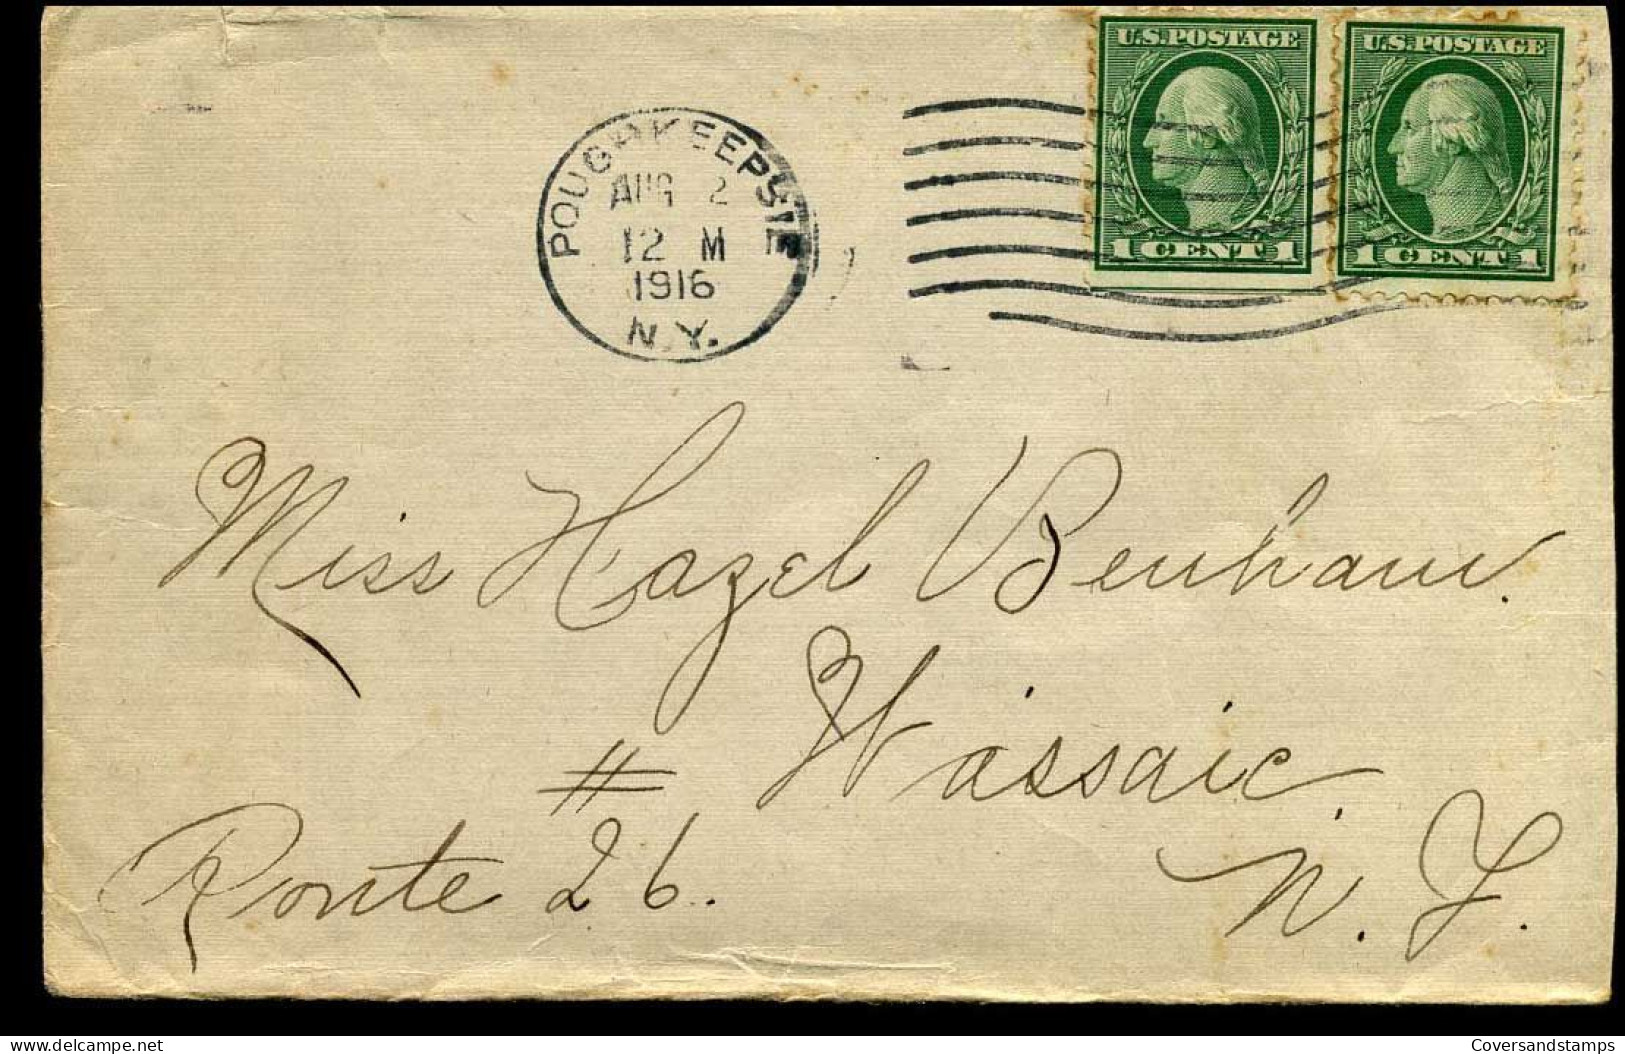 U.S. POSTAGE
1 CENT 1
U.S. POSTAGE
1 CENT 1
POUGHKEEPSIE
AUG 2
12 M
1916
N.Y.
Miss Hazel Benham.
Wassaic
#
Route 26.
N. Y.
delcampe.net
Coversandstamps